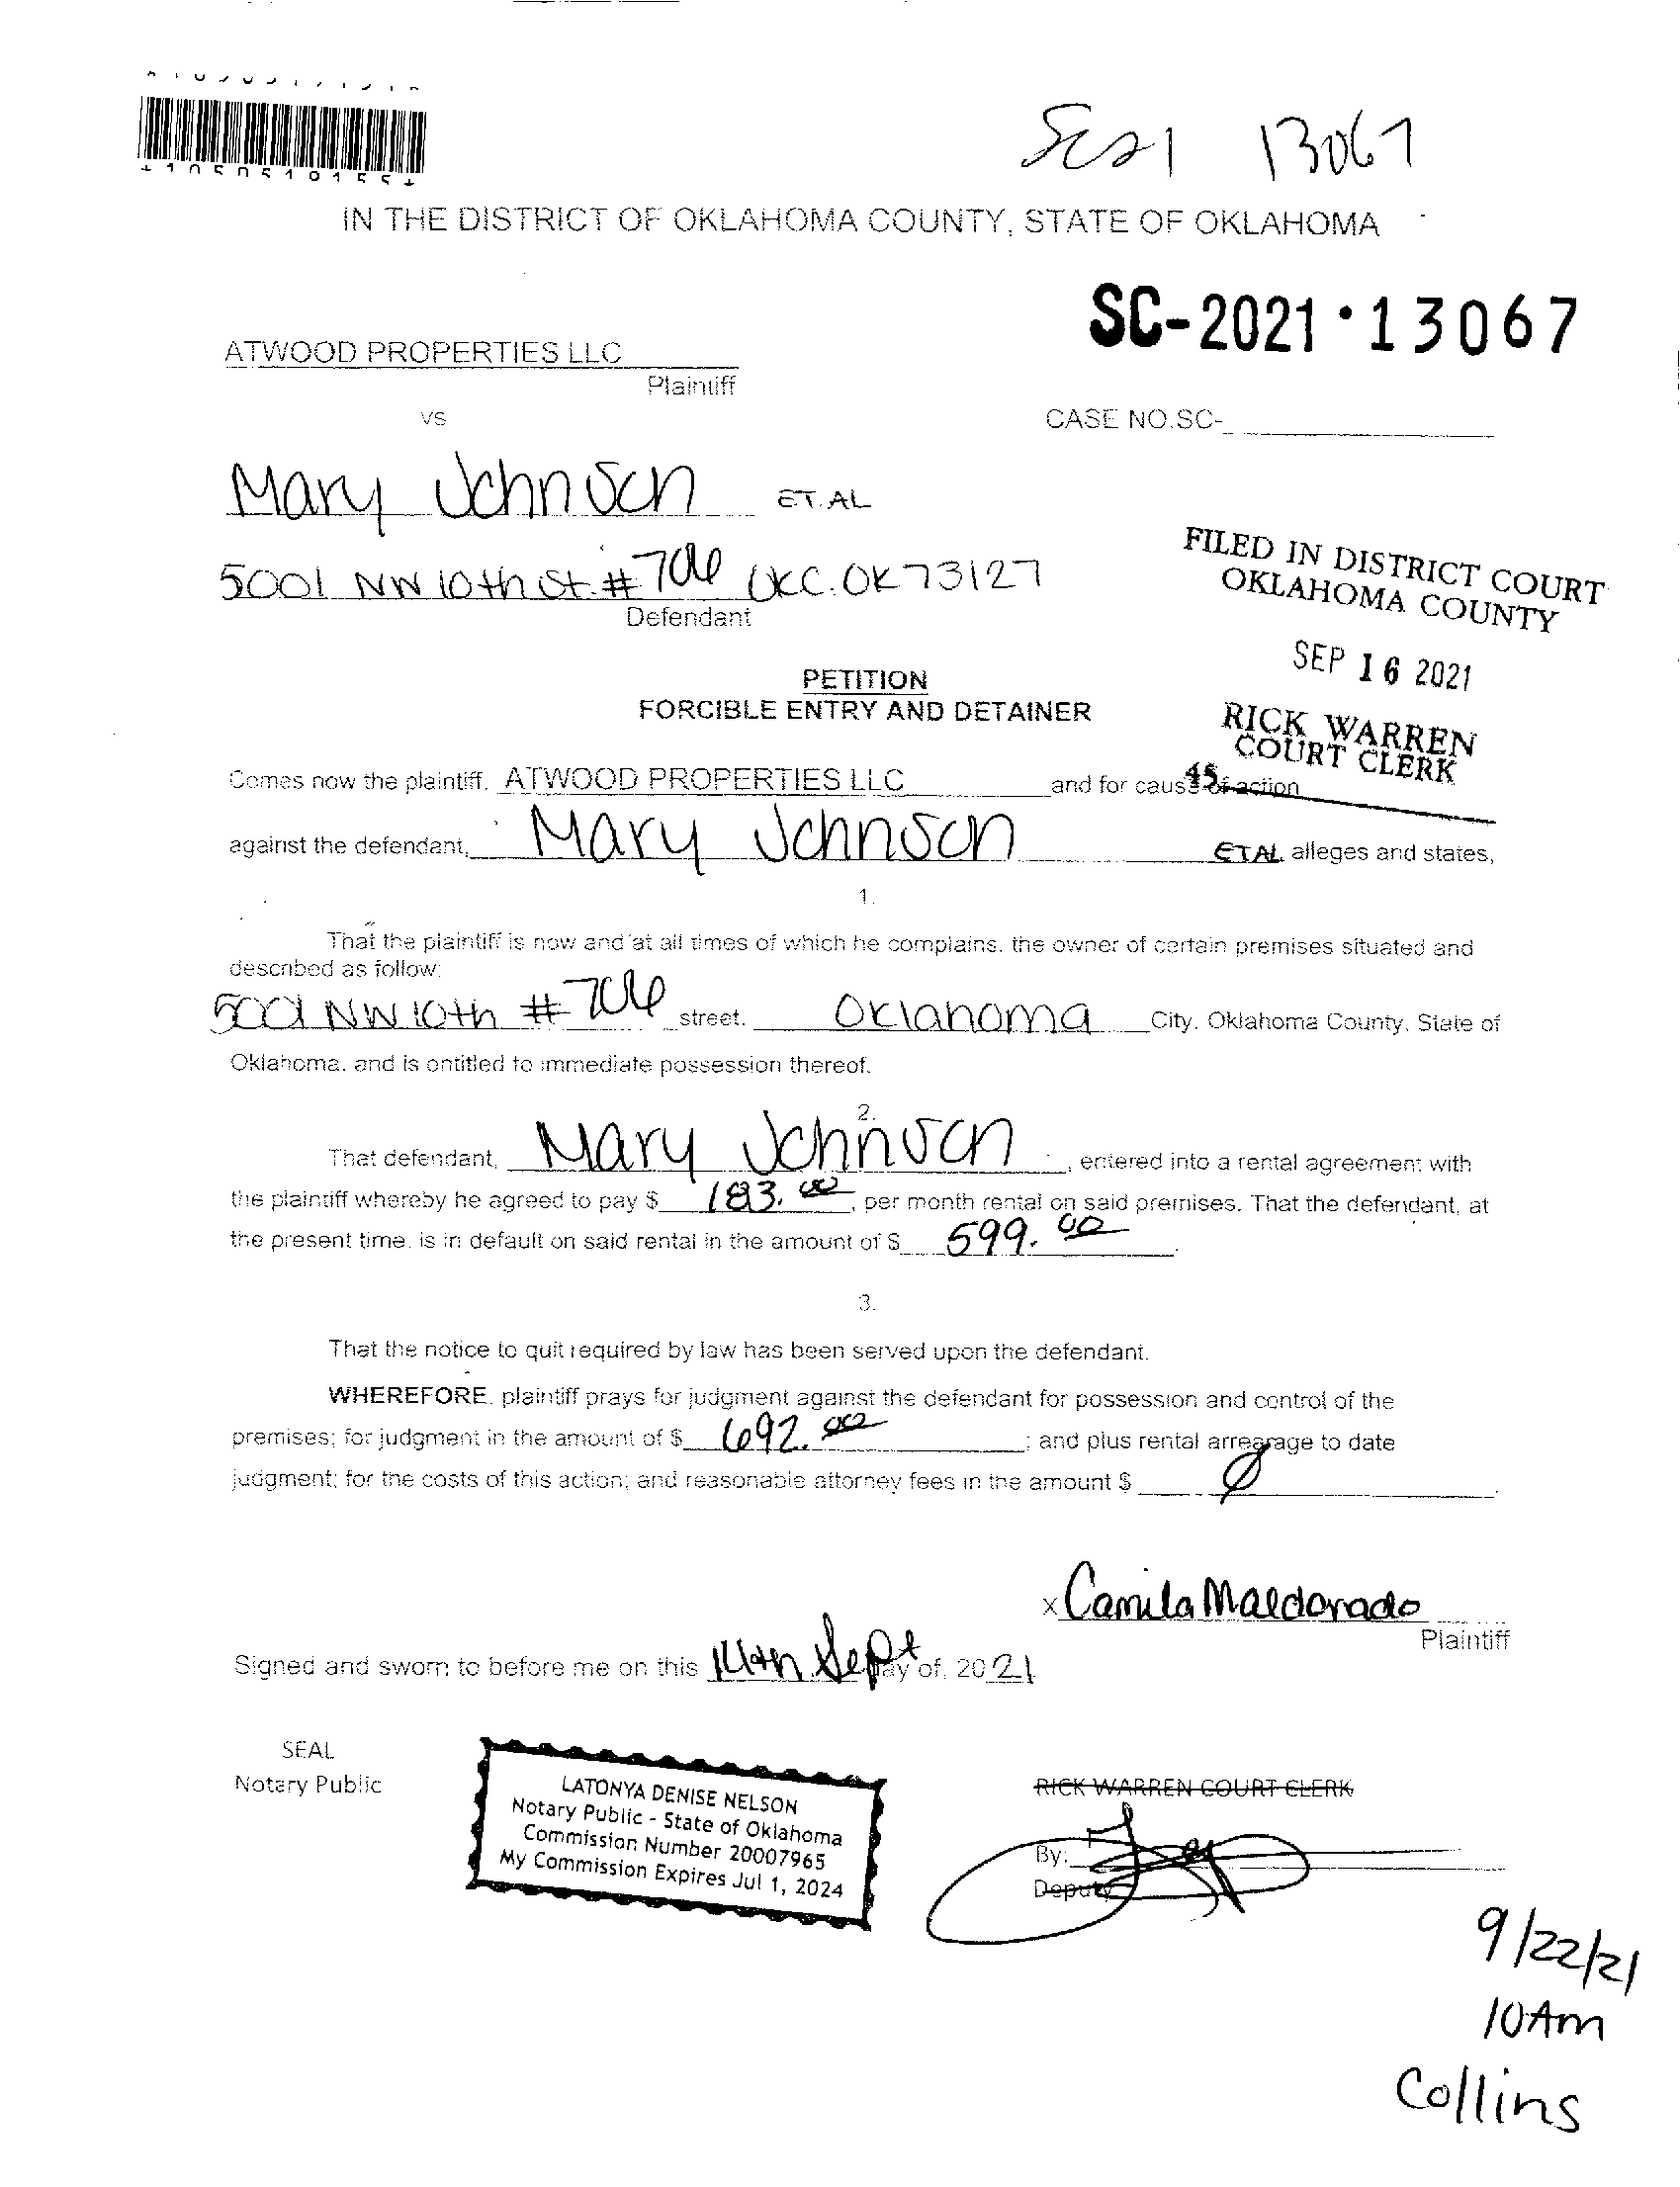 SC21 13067
IN THE DISTRICT OF OKLAHOMA COUNTY, STATE OF OKLAHOMA
SC-2021·13067
ATWOOD PROPERTIES LLC
Plaintiff
vs
CASE NO.SC-
Mary Johnson ET.AL
5001 NW 10th St. # 706 OKC. OK 73127
Defendant
FILED IN DISTRICT COURT
OKLAHOMA COUNTY
SEP 16 2021
RICK WARREN
COURT CLERK
45
PETITION
FORCIBLE ENTRY AND DETAINER
Comes now the plaintiff, ATWOOD PROPERTIES LLC and for cause of action
against the defendant, Mary Johnson ETAL alleges and states,
1.
That the plaintiff is now and at all times of which he complains, the owner of certain premises situated and
described as follow:
5001 NW 10th # 706 street. Oklahoma City, Oklahoma County, State of
Oklahoma, and is entitled to immediate possession thereof.
2.
That defendant, Mary Johnson, entered into a rental agreement with
the plaintiff whereby he agreed to pay $ 183.00, per month rental on said premises. That the defendant, at
the present time, is in default on said rental in the amount of $ 599.00.
3.
That the notice to quit required by law has been served upon the defendant.
WHEREFORE, plaintiff prays for judgment against the defendant for possession and control of the
premises; for judgment in the amount of $ 692.00; and plus rental arrearage to date
judgment; for the costs of this action; and reasonable attorney fees in the amount $ Ø.
x Camila Maldonado
Plaintiff
Signed and sworn to before me on this Sept day of, 2021
SEAL
Notary Public
LATONYA DENISE NELSON
Notary Public - State of Oklahoma
Commission Number 20007965
My Commission Expires Jul 1, 2024
RICK WARREN COURT CLERK
By:
Deputy
9/22/21
10Am
Collins